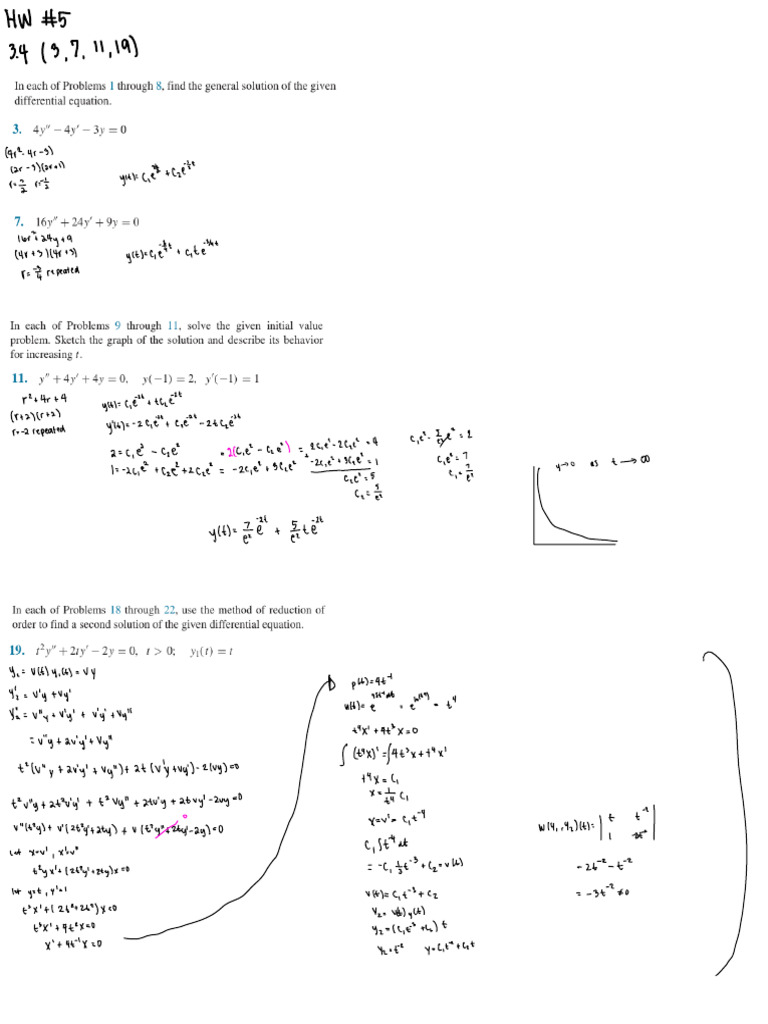 HW #5
3.4 (3, 7, 11, 19)
In each of Problems 1 through 8, find the general solution of the given
differential equation.
3. 4y″ − 4y′ − 3y = 0
(4r² - 4r - 3)
(2r - 3)(2r+1)
r = 3/2 r = -1/2
7. 16y″ + 24y′ + 9y = 0
(4r + 3)(4r + 3)
r = -3/4 repeated
In each of Problems 9 through 11, solve the given initial value
problem. Sketch the graph of the solution and describe its behavior
for increasing t.
11. y″ + 4y′ + 4y = 0, y(−1) = 2, y′(−1) = 1
r² + 4r + 4
(r+2)(r+2)
r = -2 repeated
y(t) = C₁e^-2t + tC₂e^-2t
2 = C₁e² − C₂e²
C₂e² = 5
C₂ = 5/e²
C₁e² = 7
C₁ = 7/e²
y→0 as t → ∞
y(t) = 7/e² e^-2t + 5/e² te^-2t
In each of Problems 18 through 22, use the method of reduction of
order to find a second solution of the given differential equation.
19. t²y″ + 2ty′ − 2y = 0, t > 0; y₁(t) = t
y₂ = v(t) y₁(t) = vy
y₂' = v'y + vy'
y₂″ = v″y + v'y' + v'y' + vy″
= v″y + 2v'y' + vy″
t²(v″y + 2v'y' + vy″) + 2t(v'y + vy') - 2(vy) = 0
t²v″y + 2t²v'y' + t²vy″ + 2tv'y + 2tvy' - 2vy = 0
v″(t²y) + v'(2t²y' + 2ty) + v(t²y″ + 2ty' - 2y) = 0
let x=v', x'=v″
t²yx' + (2t²y' + 2ty)x = 0
let y=t, y'=1
t³x' + (2t² + 2t²)x = 0
t³x' + 4t²x = 0
x' + 4t⁻¹x = 0
p(t) = 4t⁻¹
t⁴x' + 4t³x = 0
∫(t⁴x)' = ∫4t³x + t⁴x'
t⁴x = C₁
x = 1/t⁴ C₁
x = v' = C₁t⁻⁴
C₁∫t⁻⁴ dt
= -C₁ 1/3 t⁻³ + C₂ = v(t)
v(t) = C₁t⁻³ + C₂
y₂ = v(t) y(t)
y₂ = (C₁t⁻³ + C₂) t
y₂ = t⁻²
= -3t⁻² ≠ 0